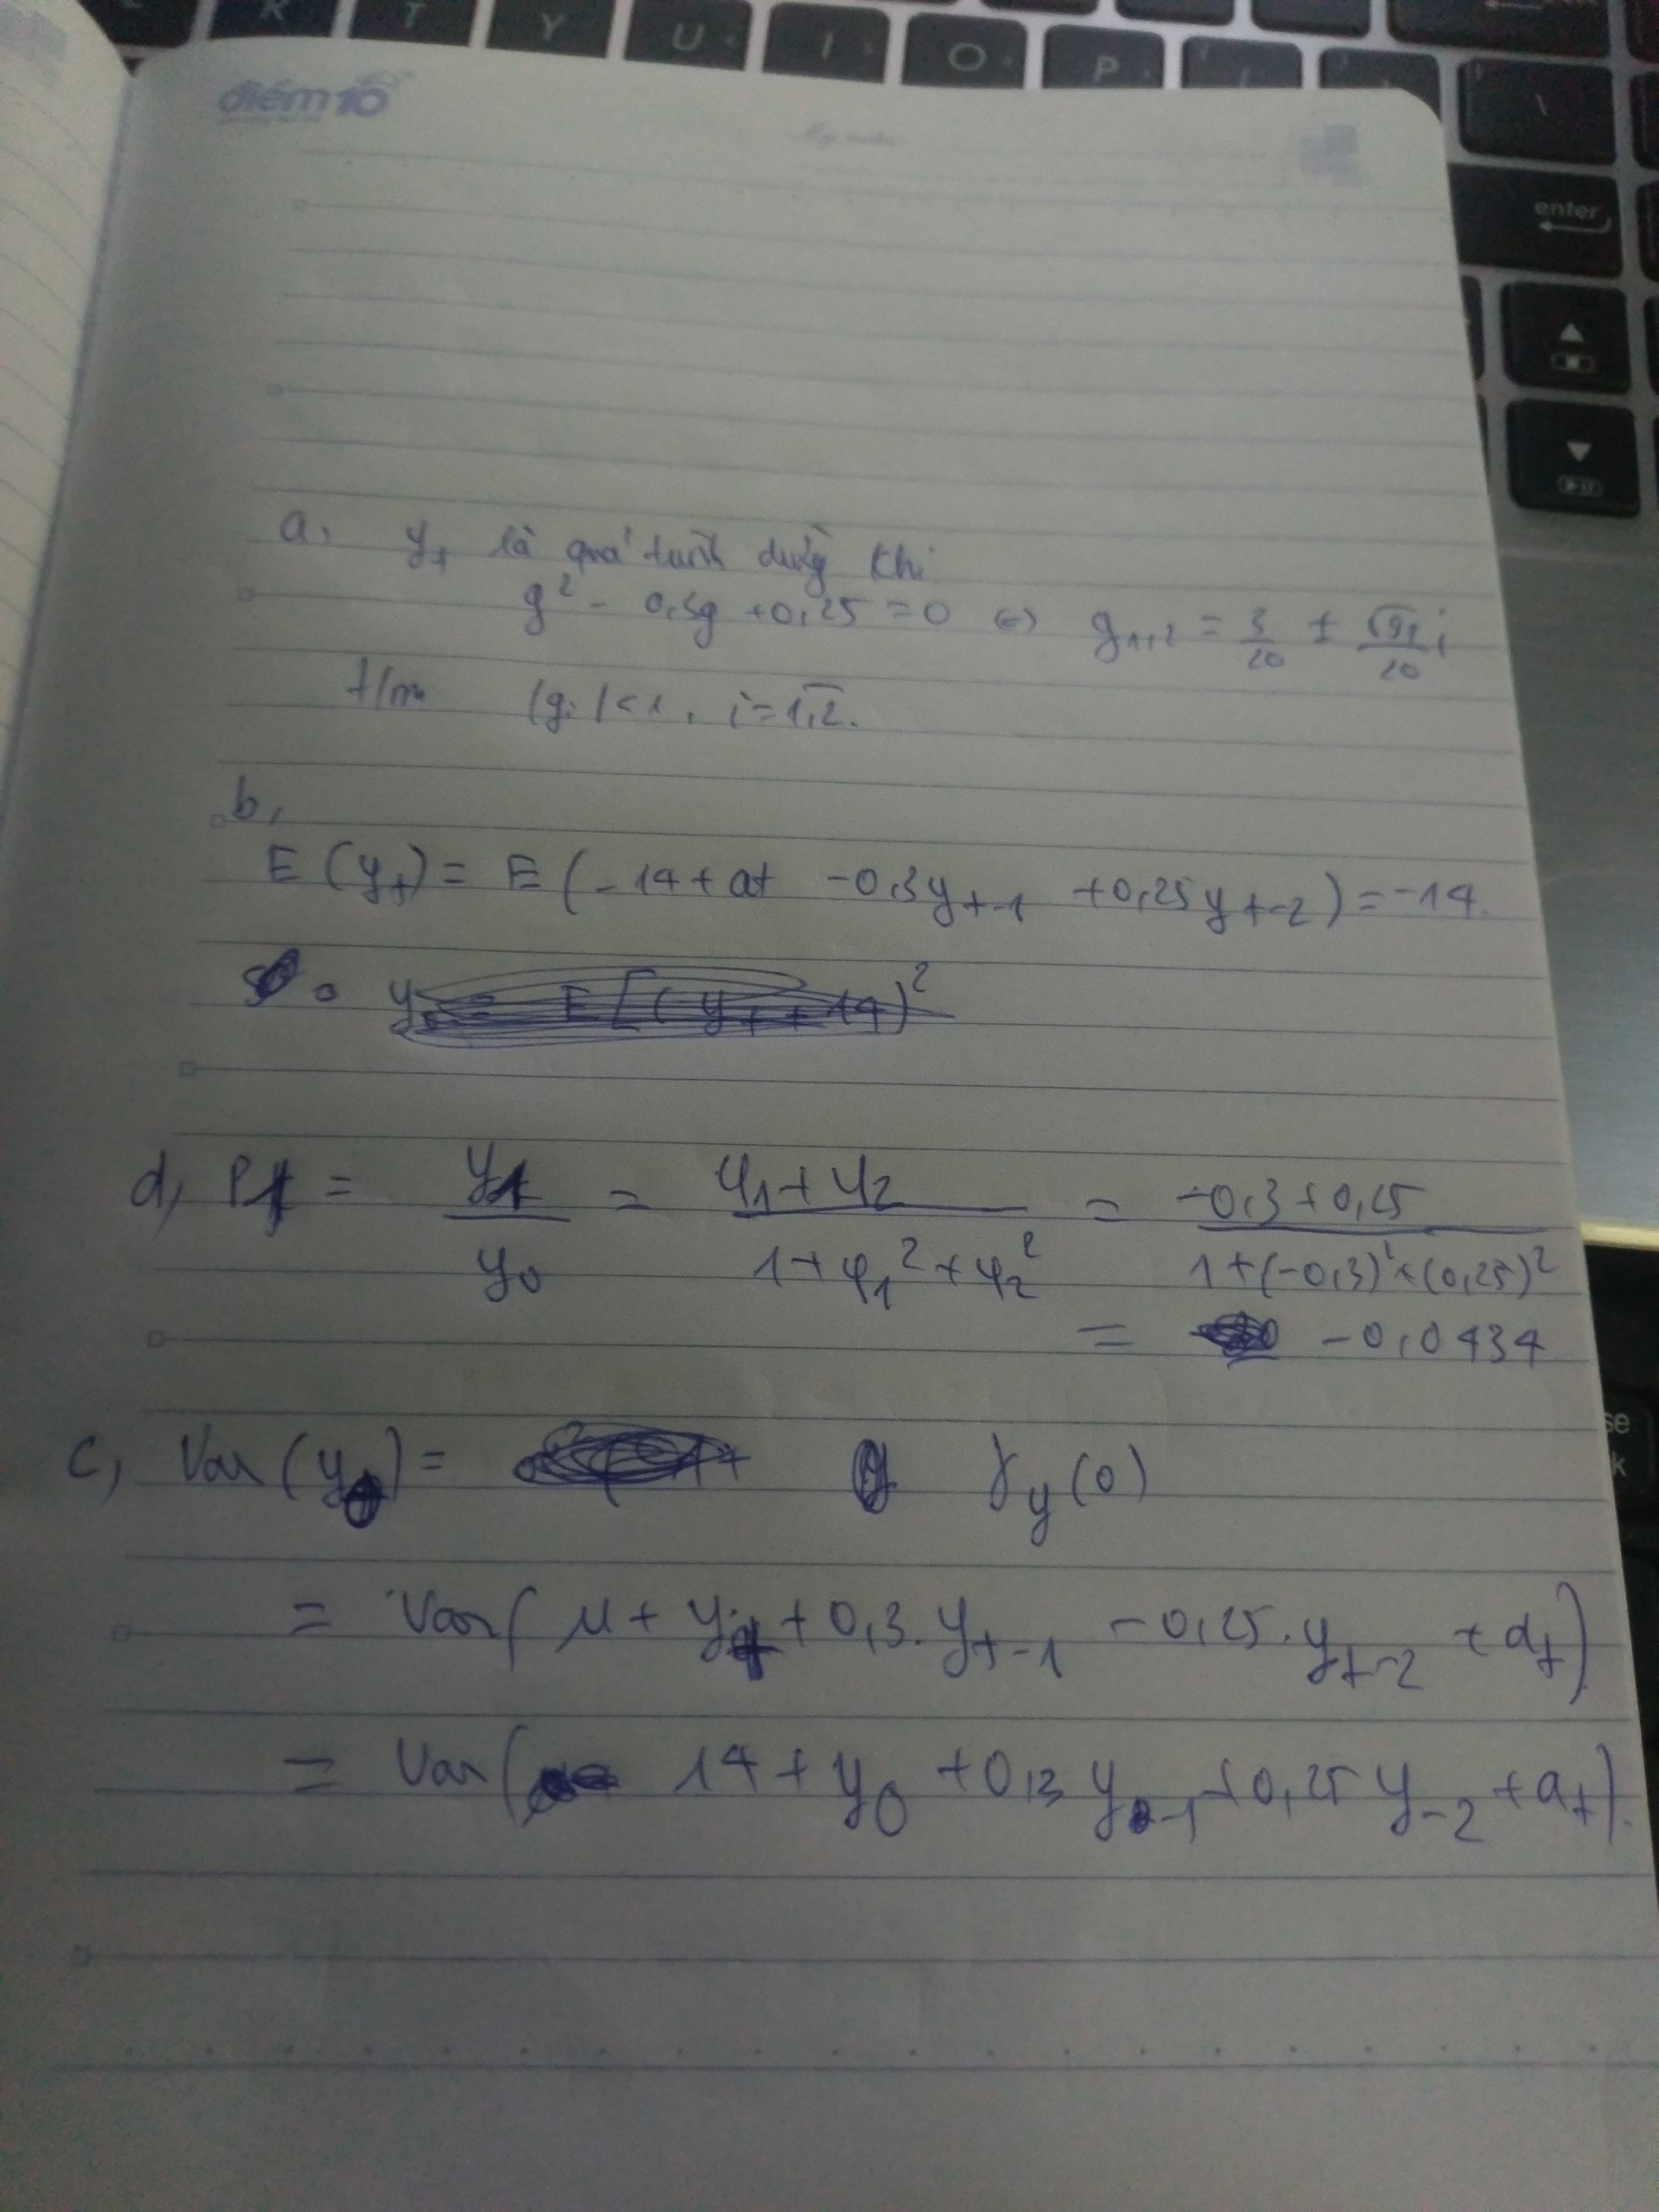 K T Y U I O P
\
điểm10
My notes
enter
a, yt là quá trình dừng khi
g² - 0,3g + 0,25 = 0 ⇔ g1,2 = 3/20 ± √91/20 i
t/m |gi| < 1, i = 1,2.
b,
E(yt) = E(-14 + at - 0,3yt-1 + 0,25yt-2) = -14.
d, ρ1 = y1/y0 = (φ1 + φ2)/(1 + φ1² + φ2²) = (-0,3 + 0,25)/(1 + (-0,3)² + (0,25)²)
= -0,0434
se
k
c, Var(yt) = γy(0)
= Var(μ + yt + 0,3.yt-1 - 0,25.yt-2 + at)
= Var(14 + y0 + 0,3y-1 + 0,25y-2 + at).